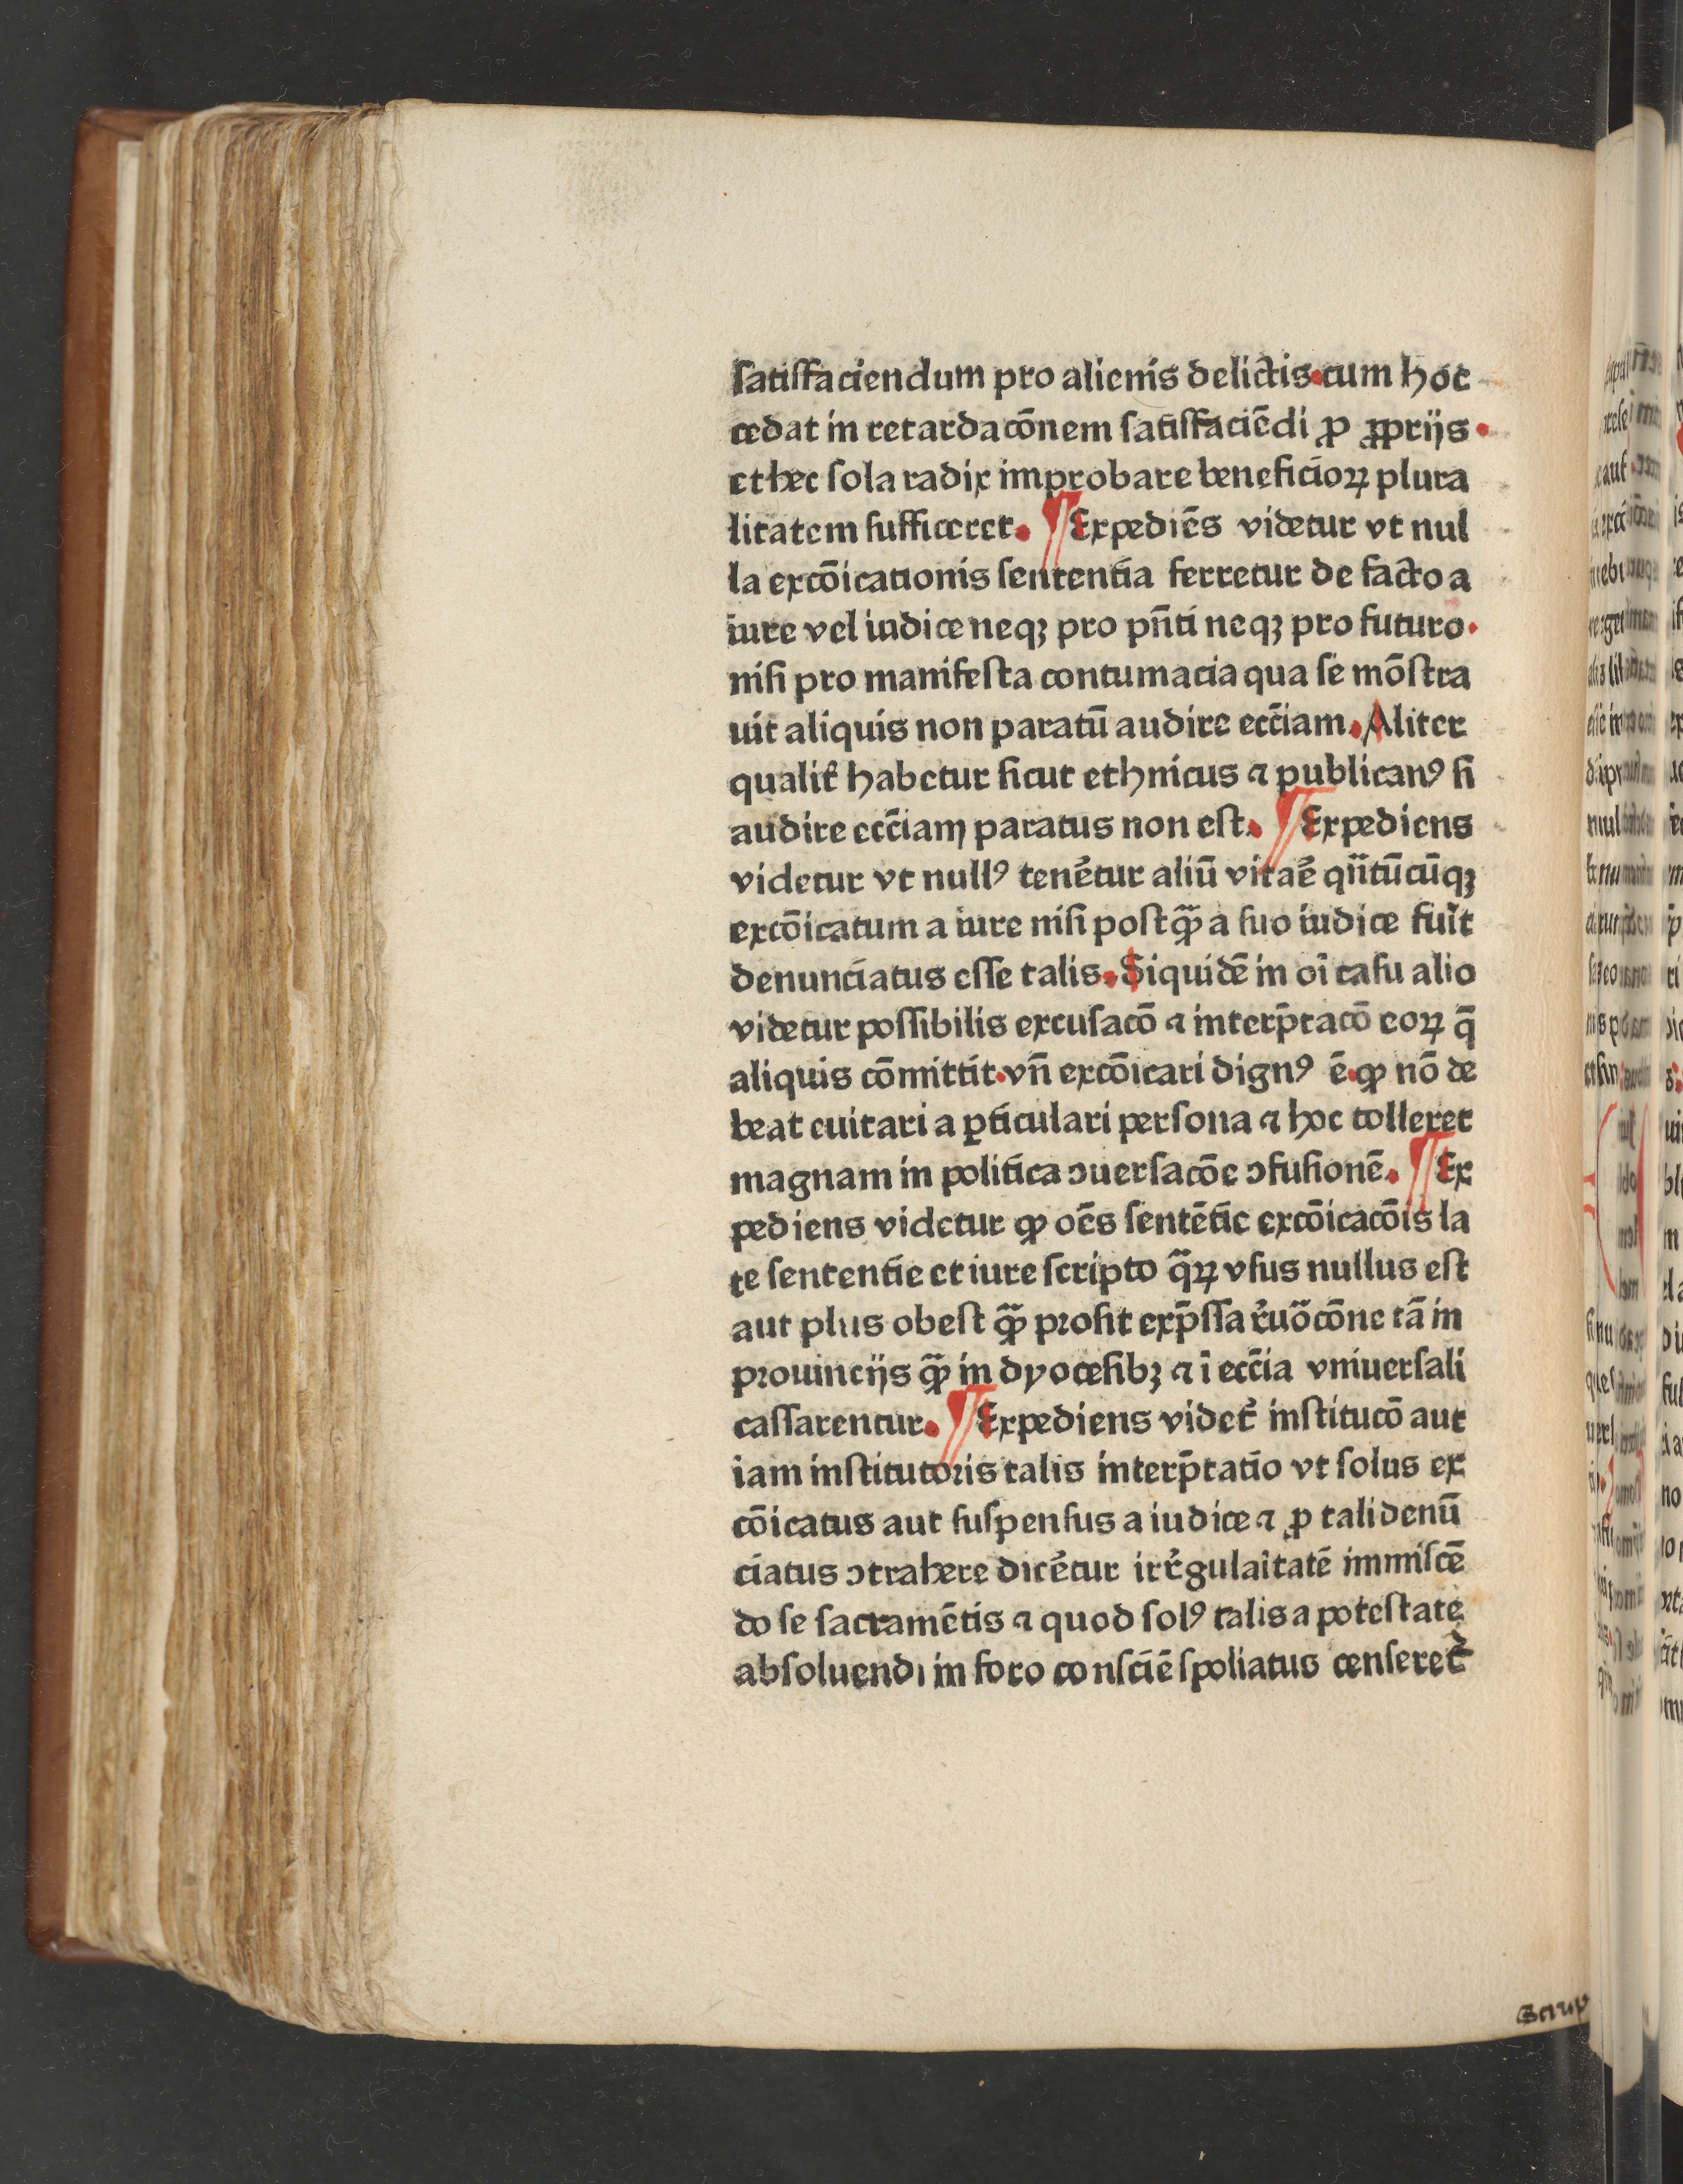 ſatiſfaciendum pro alienis delictis.cum hoc
cedat in retardacōnem ſatiſfaciēdi ꝓ ꝓprijs.
et hec ſola radix improbare beneficioꝝ plura
litatem ſufficeret. ¶Expediēs videtur vt nul
la excōicationis ſententia ferretur de facto a
iure vel iudice neqꝫ pro pn̄ti neqꝫ pro futuro.
niſi pro manifeſta contumacia qua ſe mōſtra
uit aliquis non paratū audire ecc̄iam. Aliter
qualit̉ habetur ſicut ethnicus ⁊ publicanꝰ ſi
audire ecc̄iam paratus non eſt. ¶Expediens
videtur vt nullꝰ tenēt̉ur aliū vitaē qn̄tūcūqꝫ
excōicatum a iure niſi poſtqꝫ̄ a ſuo iudice fuīt
denunciatus eſſe talis. Siquidē in oī caſu alio
videtur poſſibilis excuſacō ⁊ interp̄tacō eoꝝ q̄
aliquis cōmittit.vn̄ excōicari dignꝰ ē.ꝙ nō de
beat euitari a ꝑticulari perſona ⁊ hoc tolleret
magnam in politica ↄuerſacōe ↄfuſionē. ¶Ex
pediens videtur ꝙ oēs ſentētie excōicacōis la
te ſententie et iure ſcripto q̄ꝝ vſus nullus eſt
aut plus obeſt qꝫ̄ profit exp̄ſſa r̉uōcōne tā in
prouincijs qꝫ̄ in dyoceſibꝫ ⁊ ī ecc̄ia vniuerſali
caſſarentur. ¶Expediens videt̉ inſtitucō aut
iam inſtitutoris talis interp̄tatio vt ſolus ex
cōicatus aut ſuſpenſus a iudice ⁊ ꝓ tali denū
ciatus ↄtrahere dicēt̉ur irr̉gulaītatē immiſcē
do ſe ſacramētis ⁊ quod ſolꝰ talis a poteſtate
abſoluendi in foro conſciē ſpoliatus cenſeret̉